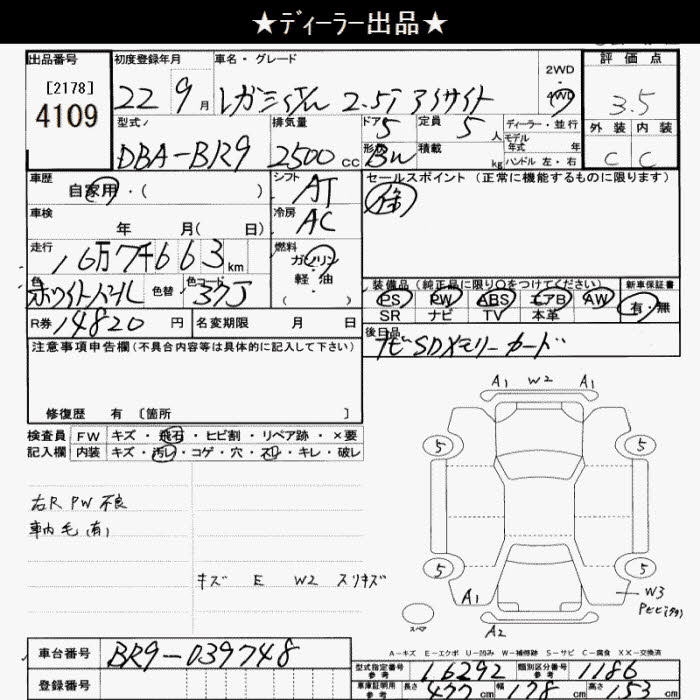 ★ディーラー出品★
出品番号 初度登録年月 車名・グレード 2WD 評価点
[2178] 22 9月 レガシィワゴン 2.5i アイサイト 4WD 3.5
4109 型式 排気量 ドア 5 定員 5人 ディーラー・並行 外装 内装
DBA-BR9 2500cc 形状 BW 積載 kg モデル年式 年 ハンドル左・右 C C
車歴 自家用・( ) シフト AT セールスポイント (正常に機能するものに限ります)
車検 年 月( 日) 冷房 AC
走行 16万7千663km 燃料 ガソリン・軽油 ( )
色 ホワイトパール 色替 色コード 37J 装備品 (純正品に限り○をつけてください) 新車保証書
PS PW ABS エアB AW 有・無
SR ナビ TV 本革
R券 14820円 名変期限 月 日 後日品
ナビSDメモリーカード
注意事項申告欄 (不具合内容等は具体的に記入して下さい)
修復歴 有 〔箇所 〕
検査員 FW キズ・飛石・ヒビ割・リペア跡・×要
記入欄 内装 キズ・汚レ・コゲ・穴・スレ・キレ・破レ
右R PW 不良
車内毛(有)
キズ E W2 スリキズ
A1 W2 A1
5 5
5 5
A1 W3
スペア A2
A-キズ E-エクボ U-凹み W-補修跡 S-サビ C-腐食 XX-交換済
車台番号 BR9-039748
登録番号
型式指定番号 参考 16292 類別区分番号 参考 1186
車庫証明用 参考 長さ 477cm 幅 178cm 高さ 153cm